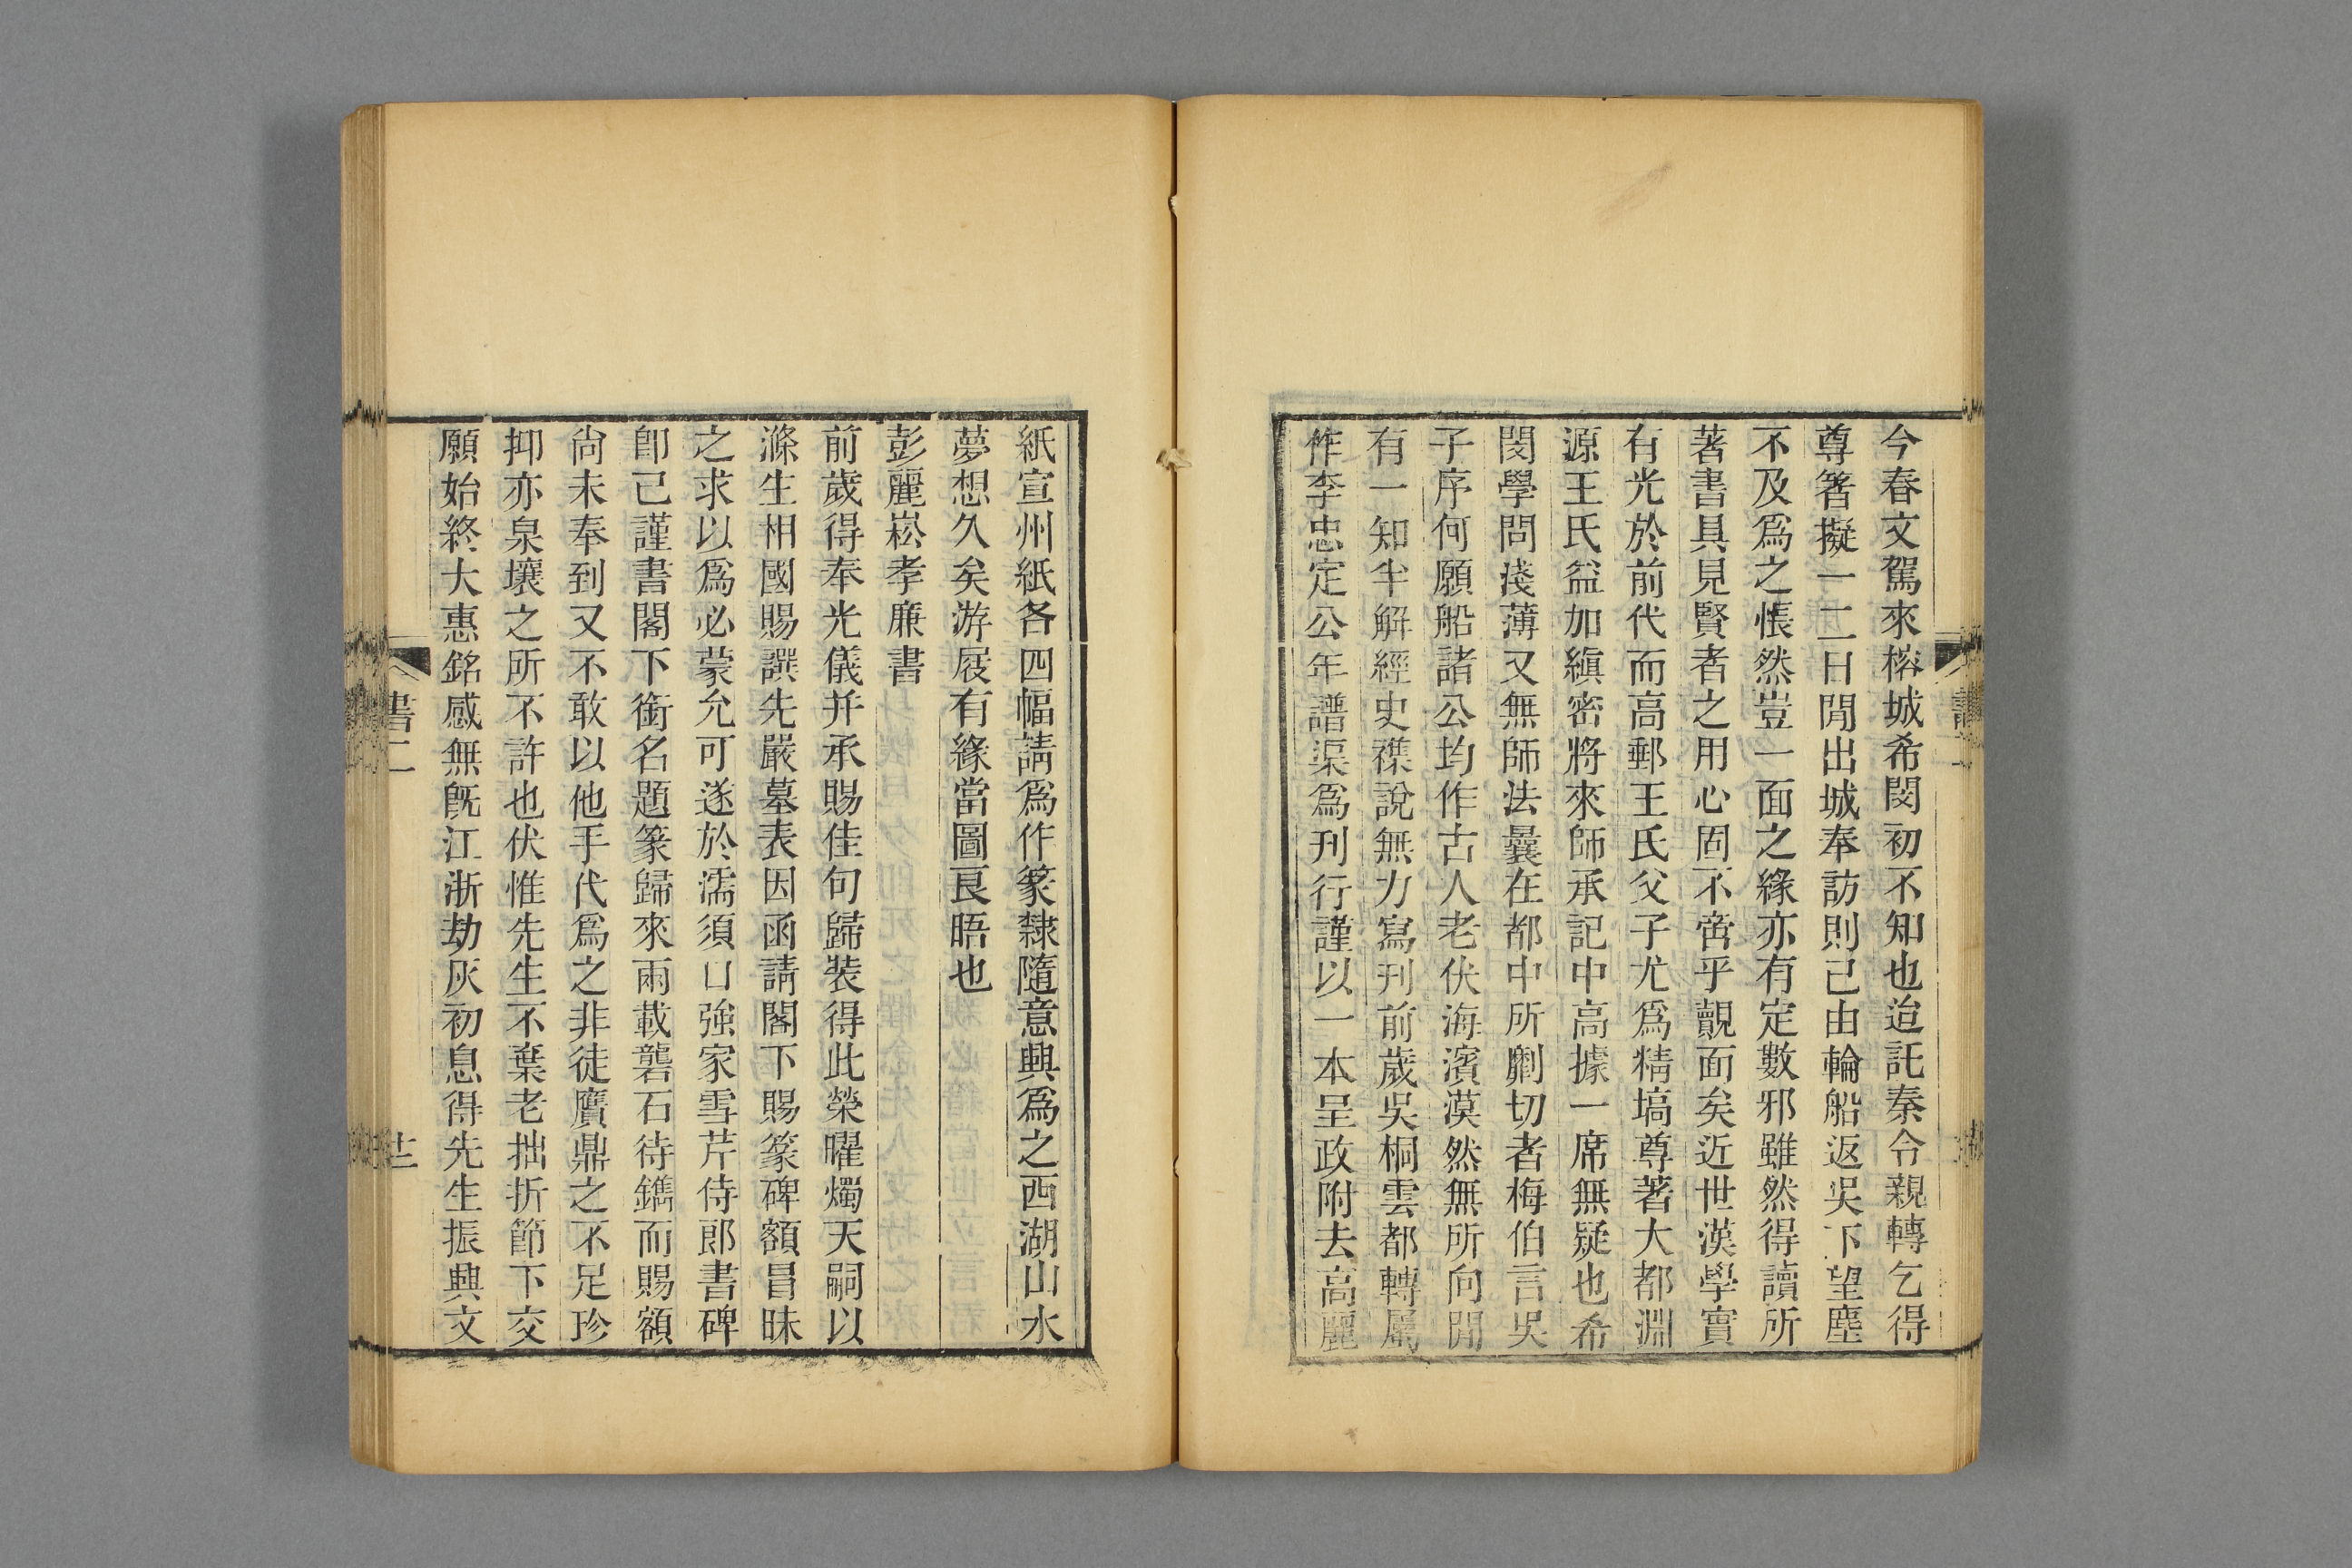 今春文駕來榕城希閔初不知也迨託秦令親轉乞得
尊箸擬一二日閒出城奉訪則已由輪船返吳下望塵
不及爲之悵然豈一面之緣亦有定數邪雖然得讀所
著書具見賢者之用心固不啻乎覿面矣近世漢學實
有光於前代而高郵王氏父子尤爲精塙尊著大都淵
源王氏益加縝密將來師承記中高據一席無疑也希
閔學問淺薄又無師法曩在都中所劘切者梅伯言吳
子序何願船諸公均作古人老伏海濱漠然無所向閒
有一知半解經史襍說無力寫刊前歲吳桐雲都轉屬
作李忠定公年譜渠爲刊行謹以一本呈政附去高麗
紙宣州紙各四幅請爲作篆隸隨意興爲之西湖山水
夢想久矣游屐有緣當圖良晤也
彭麗崧孝廉書
前歲得奉光儀并承賜佳句歸裝得此榮曜燭天嗣以
滌生相國賜譔先嚴墓表因函請閣下賜篆碑額冒昧
之求以爲必蒙允可遂於濡須口強家雪芹侍郎書碑
卽已謹書閣下銜名題篆歸來兩載礱石待鐫而賜額
尙未奉到又不敢以他手代爲之非徒贗鼎之不足珍
抑亦泉壤之所不許也伏惟先生不棄老拙折節下交
願始終大惠銘感無旣江浙劫灰初息得先生振興文
書二